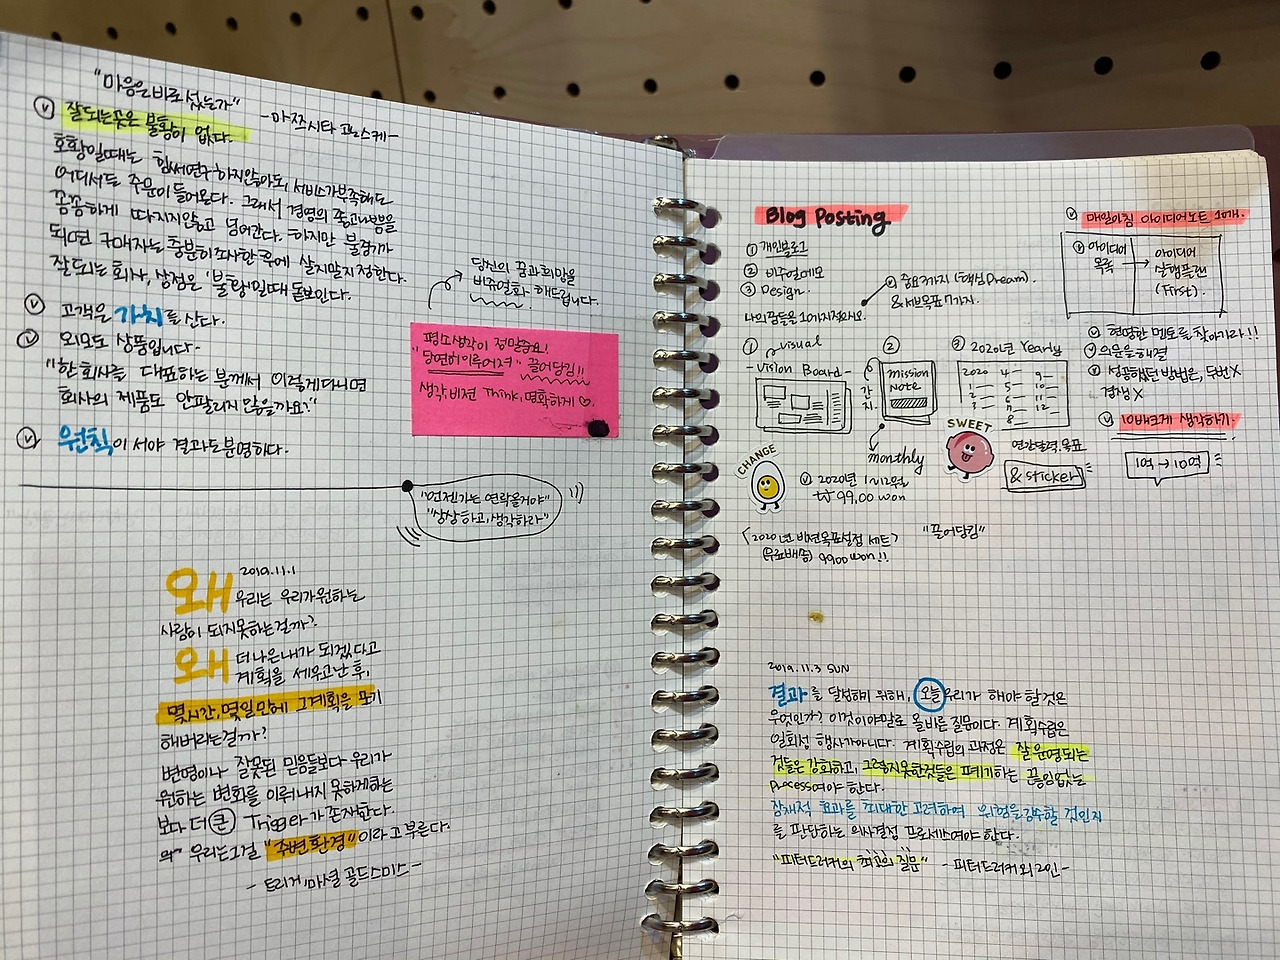 "마음은 바로 섰는가"
- 마쯔시타 고노스케 -
ⓥ 잘되는 곳은 불황이 없다.
호황일때는 힘써연구하지않아도, 서비스가부족해도
어디서든 주문이 들어온다. 그래서 경영의 좋고나쁨을
꼼꼼하게 따지지않고 넘어간다. 하지만 불경기가
되면 구매자는 충분히조사한후에 살지말지 정한다.
잘되는 회사, 상점은 '불황'일때 돋보인다.
ⓥ 고객은 가치를 산다.
ⓥ 외모도 상품입니다-
"한 회사를 대표하는 분께서 이렇게다니면
회사의 제품도 안팔리지 않을까요?"
ⓥ 원칙이 서야 결과도분명하다.
당신의 꿈과희망을
비쥬얼화 해드립니다.
평소생각이 정말중요!
"당연히이루어져" 끌어당김!!
생각, 비젼 Think, 명확하게 ♡.
"언젠가는 연락올거야"
"상상하고, 생각하라"
2019.11.1
왜 우리는 우리가원하는
사람이 되지못하는걸까?
왜 더나은내가 되겠다고
계획을 세우고난 후,
몇시간, 몇일만에 그계획을 포기
해버리는걸까?
변명이나 잘못된 믿음들보다 우리가
원하는 변화를 이뤄내지 못하게하는
보다 더 큰 Trigger가 존재한다.
우리는그걸 "주변환경"이라고 부른다.
- 트리거, 마셜 골드스미스 -
Blog Posting
① 개인블로그
② 비쥬얼메모
③ Design.
나의꿈들을 10가지적으시오.
ⓥ 중요3가지 (핵심 Dream).
& 서브목표 7가지.
ⓥ 매일아침 아이디어노트 10개.
ⓥ 아이디어
목록
→
아이디어
실행플랜
(First).
ⓥ 현명한 멘토를 찾아가라!!
ⓥ 의문을해결
ⓥ 성공했던 방법은, 두번X
경쟁 X
ⓥ 10배크게 생각하기.
1억 → 10억
① visual
- Vision Board -
②
간지.
mission
Note
monthly
③ 2020년 Yearly
2020 4 9
1 5 10
2 6 11
3 7 12
8
연간달력.목표
& sticker
CHANGE
SWEET
ⓥ 2020년 1~12월
₩ 99,00 won
<2020년 비젼목표설정 세트>
(무료배송) 9900 won!!
"끌어당김"
2019.11.3 SUN
결과를 달성하기 위해, 오늘 우리가 해야 할것은
무엇인가? 이것이야말로 올바른 질문이다. 계획수립은
일회성 행사가아니다. 계획수립의 과정은 잘 운영되는
것들은 강화하고, 그렇지못한것들은 폐기하는 끊임없는
Process여야 한다.
잠재적 효과를 최대한 고려하여 위험을감수할 것인지
를 판단하는 의사결정 프로세스여야 한다.
"피터드러커의 최고의 질문" - 피터드러커 외 2인 -